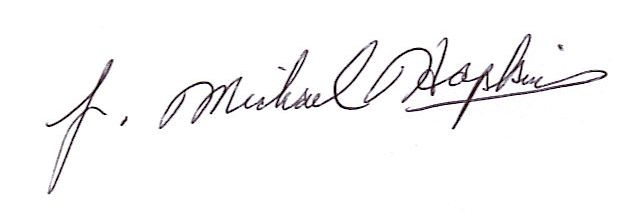 J. Michael Hopkins